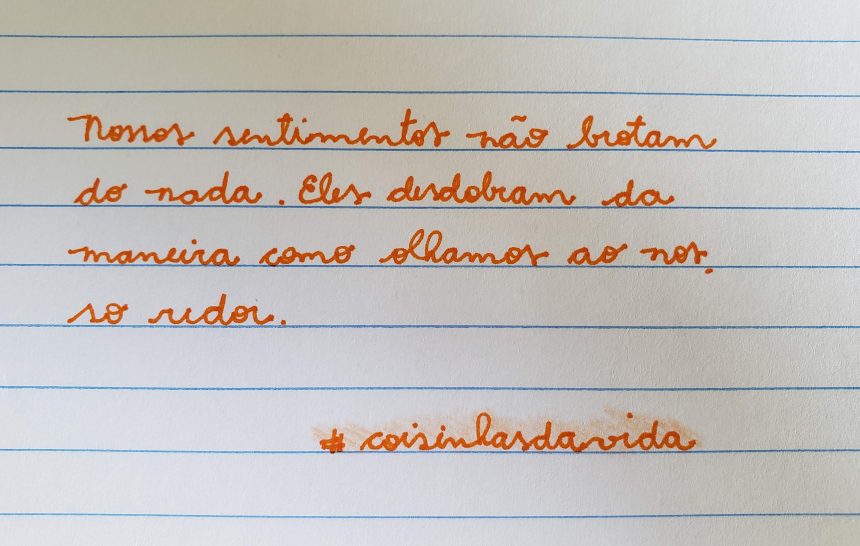 Nossos sentimentos não brotam
do nada. Eles desdobram da
maneira como olhamos ao nos.
so redor.
#coisinhasdavida